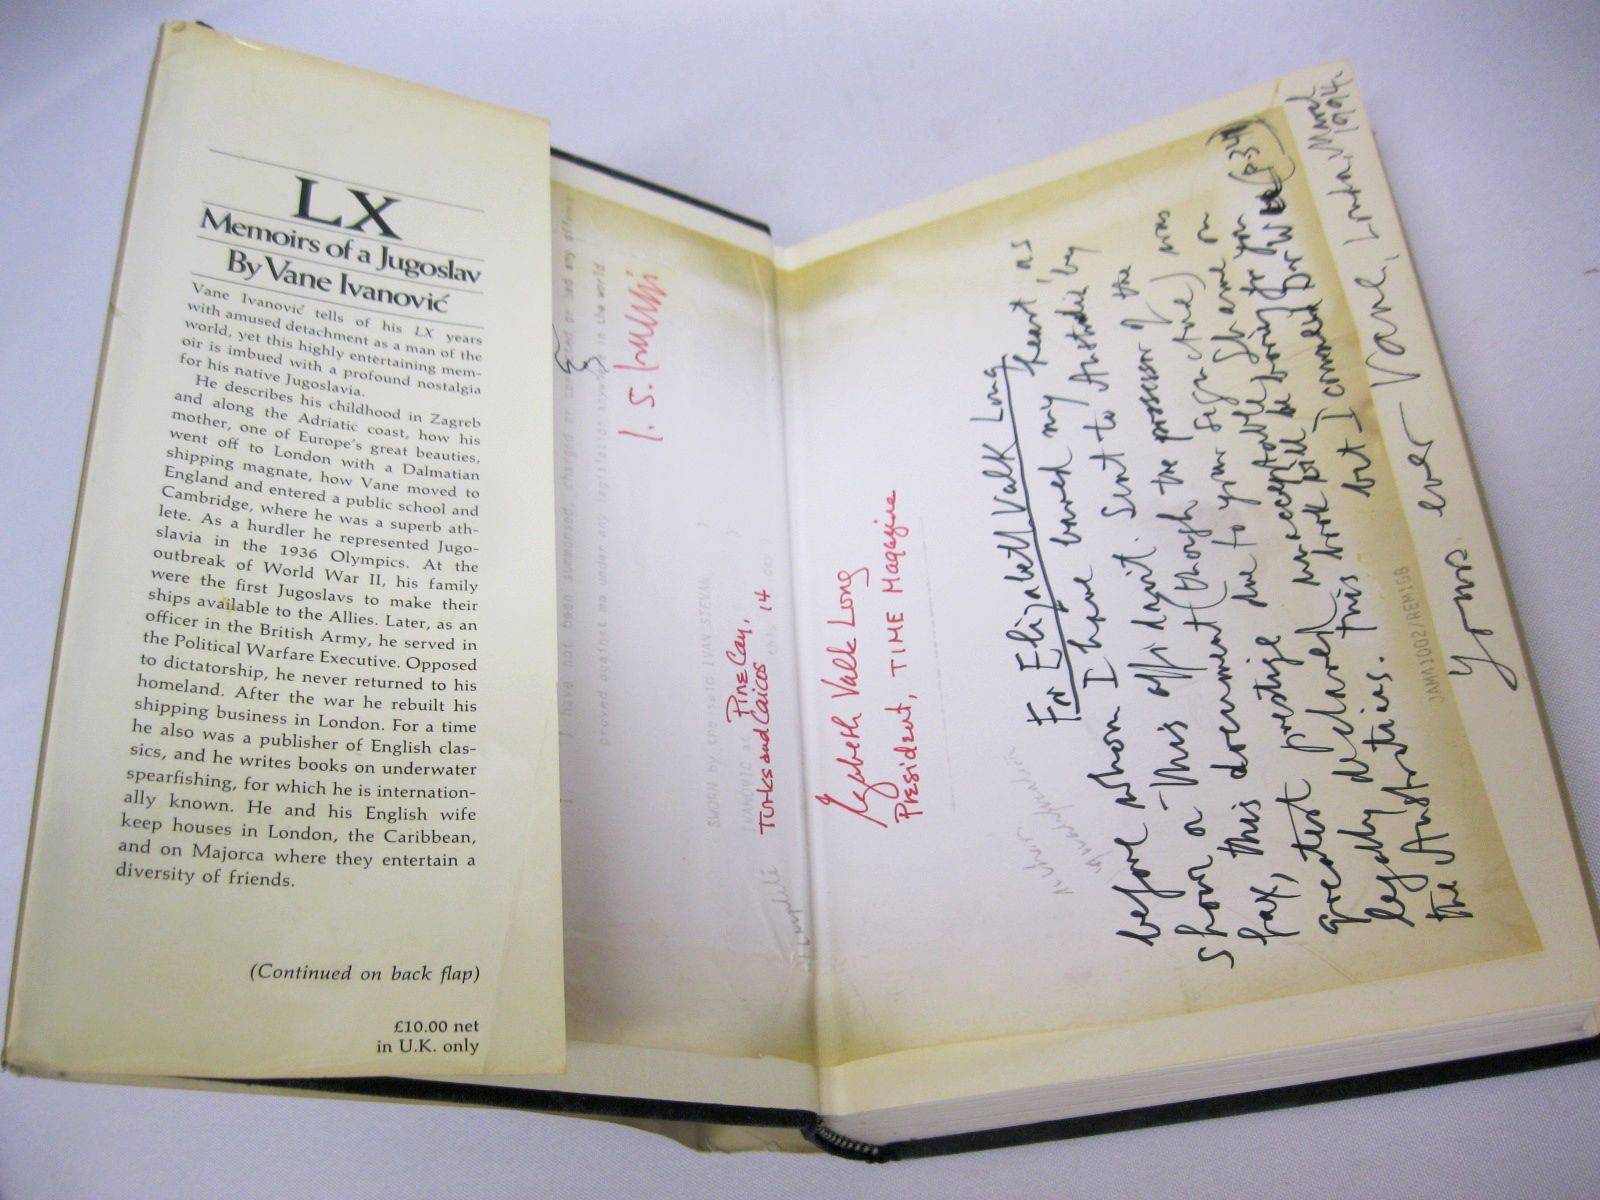 LX
Memoirs of a Jugoslav
By Vane Ivanović
Vane Ivanović tells of his LX years
with amused detachment as a man of the
world, yet this highly entertaining mem-
oir is imbued with a profound nostalgia
for his native Jugoslavia.
He describes his childhood in Zagreb
and along the Adriatic coast, how his
mother, one of Europe's great beauties,
went off to London with a Dalmatian
shipping magnate, how Vane moved to
England and entered a public school and
Cambridge, where he was a superb ath-
lete. As a hurdler he represented Jugo-
slavia in the 1936 Olympics. At the
outbreak of World War II, his family
were the first Jugoslavs to make their
ships available to the Allies. Later, as an
officer in the British Army, he served in
the Political Warfare Executive. Opposed
to dictatorship, he never returned to his
homeland. After the war he rebuilt his
shipping business in London. For a time
he also was a publisher of English clas-
sics, and he writes books on underwater
spearfishing, for which he is internation-
ally known. He and his English wife
keep houses in London, the Caribbean,
and on Majorca where they entertain a
diversity of friends.
(Continued on back flap)
£10.00 net
in U.K. only
I have not been summonsed, charged or convicted or had any offence
proved against me under any legislation anywhere in the world.
I. S.
SWORN by the said IVAN STEVAN )
IVANOVIC at Pine Cay, )
Turks and Caicos this 14 day )
Elizabeth Valk Long
President, TIME Magazine
For Elizabeth Valk Long
before whom I have bared my heart, as
shown on this affidavit. Sent to Australia by
fax, this document (though the possessor of the
greatest prestige due to your signature) was
legally declared unacceptable. Shame on
the Austratians. This book will be boring for you
but I commend Dr W (p. 34)
JAMA1002/REM1GB
Yours ever Vane, London, March
1994.